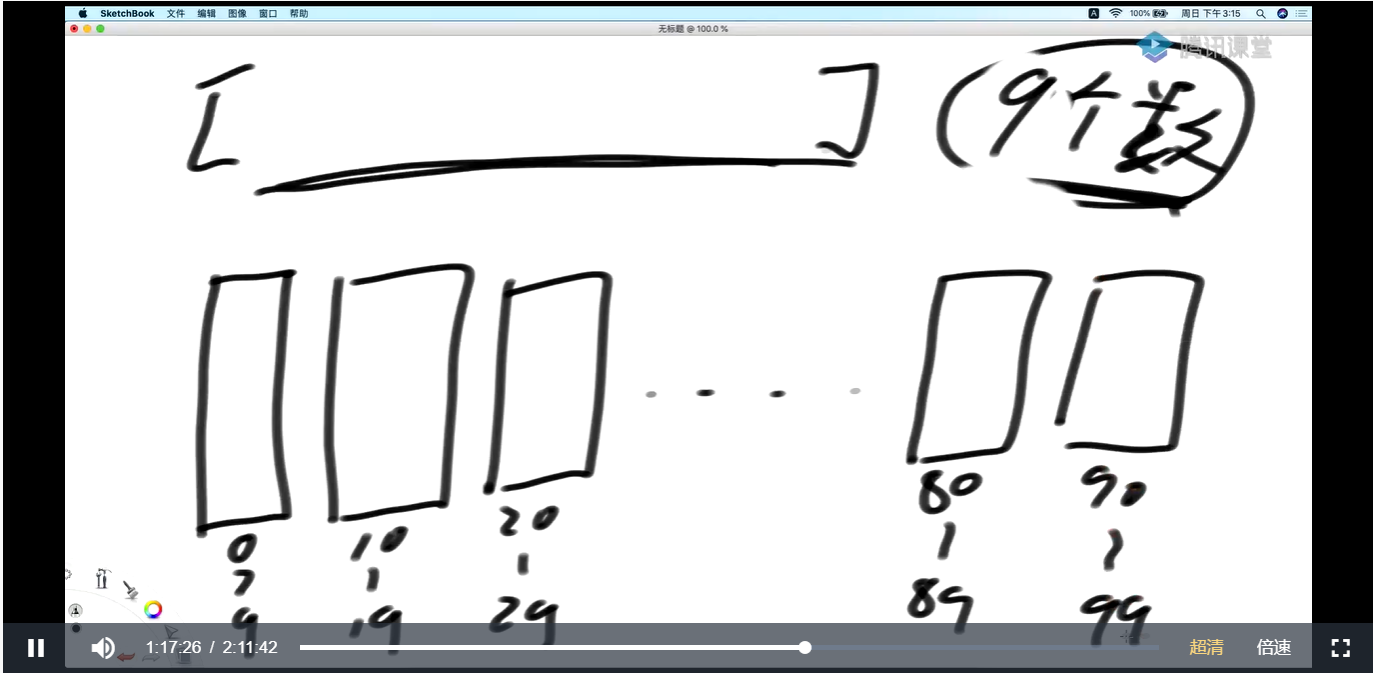 SketchBook 文件 编辑 图像 窗口 帮助 A 100% 周日 下午3:15
无标题 @ 100.0 %
腾讯课堂
[ ] (9个数
0 10 20 80 90
9 19 29 89 99
1:17:26 / 2:11:42 超清 倍速